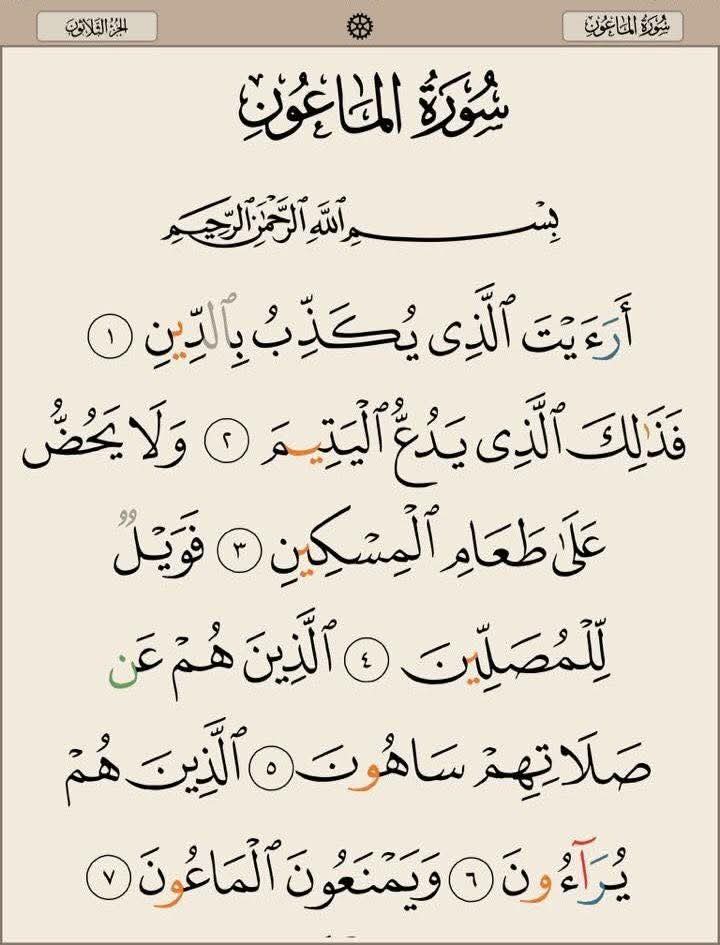 سُورَةُ المَاعُونِ
الجُزءُ الثَّلَاثُونَ
سُورَةُ المَاعُونِ
بِسْمِ ٱللَّهِ ٱلرَّحْمَٰنِ ٱلرَّحِيمِ
أَرَءَيْتَ ٱلَّذِى يُكَذِّبُ بِٱلدِّينِ ١
فَذَٰلِكَ ٱلَّذِى يَدُعُّ ٱلْيَتِيمَ ٢ وَلَا يَحُضُّ
عَلَىٰ طَعَامِ ٱلْمِسْكِينِ ٣ فَوَيْلٌ
لِّلْمُصَلِّينَ ٤ ٱلَّذِينَ هُمْ عَن
صَلَاتِهِمْ سَاهُونَ ٥ ٱلَّذِينَ هُمْ
يُرَآءُونَ ٦ وَيَمْنَعُونَ ٱلْمَاعُونَ ٧